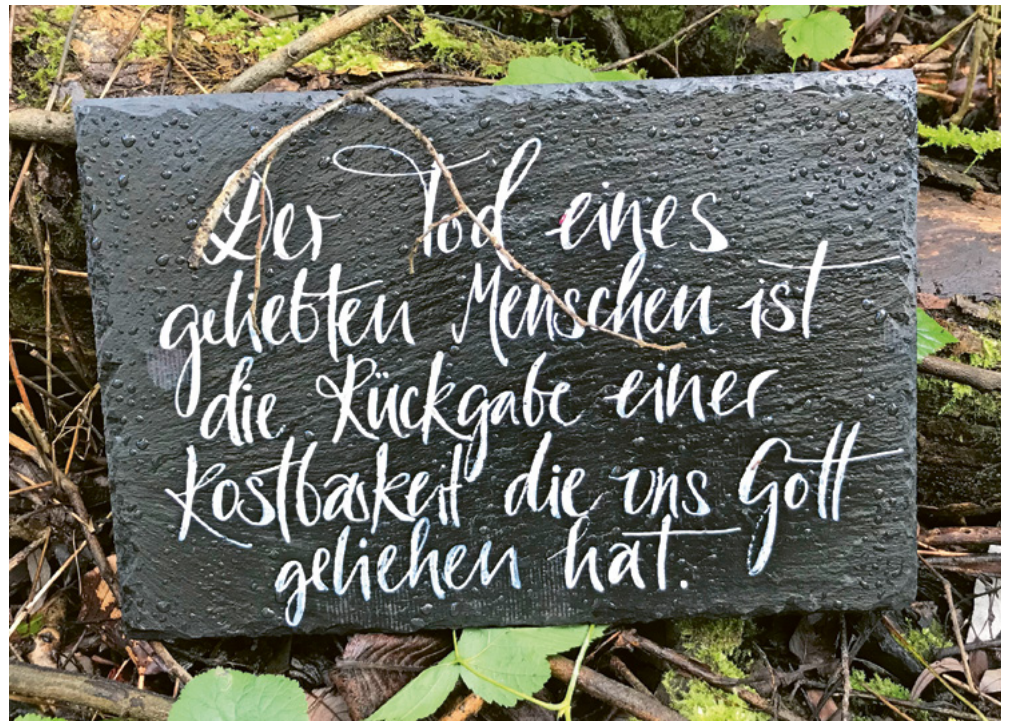 Der Tod eines
geliebten Menschen ist
die Rückgabe einer
Kostbarkeit die uns Gott
geliehen hat.